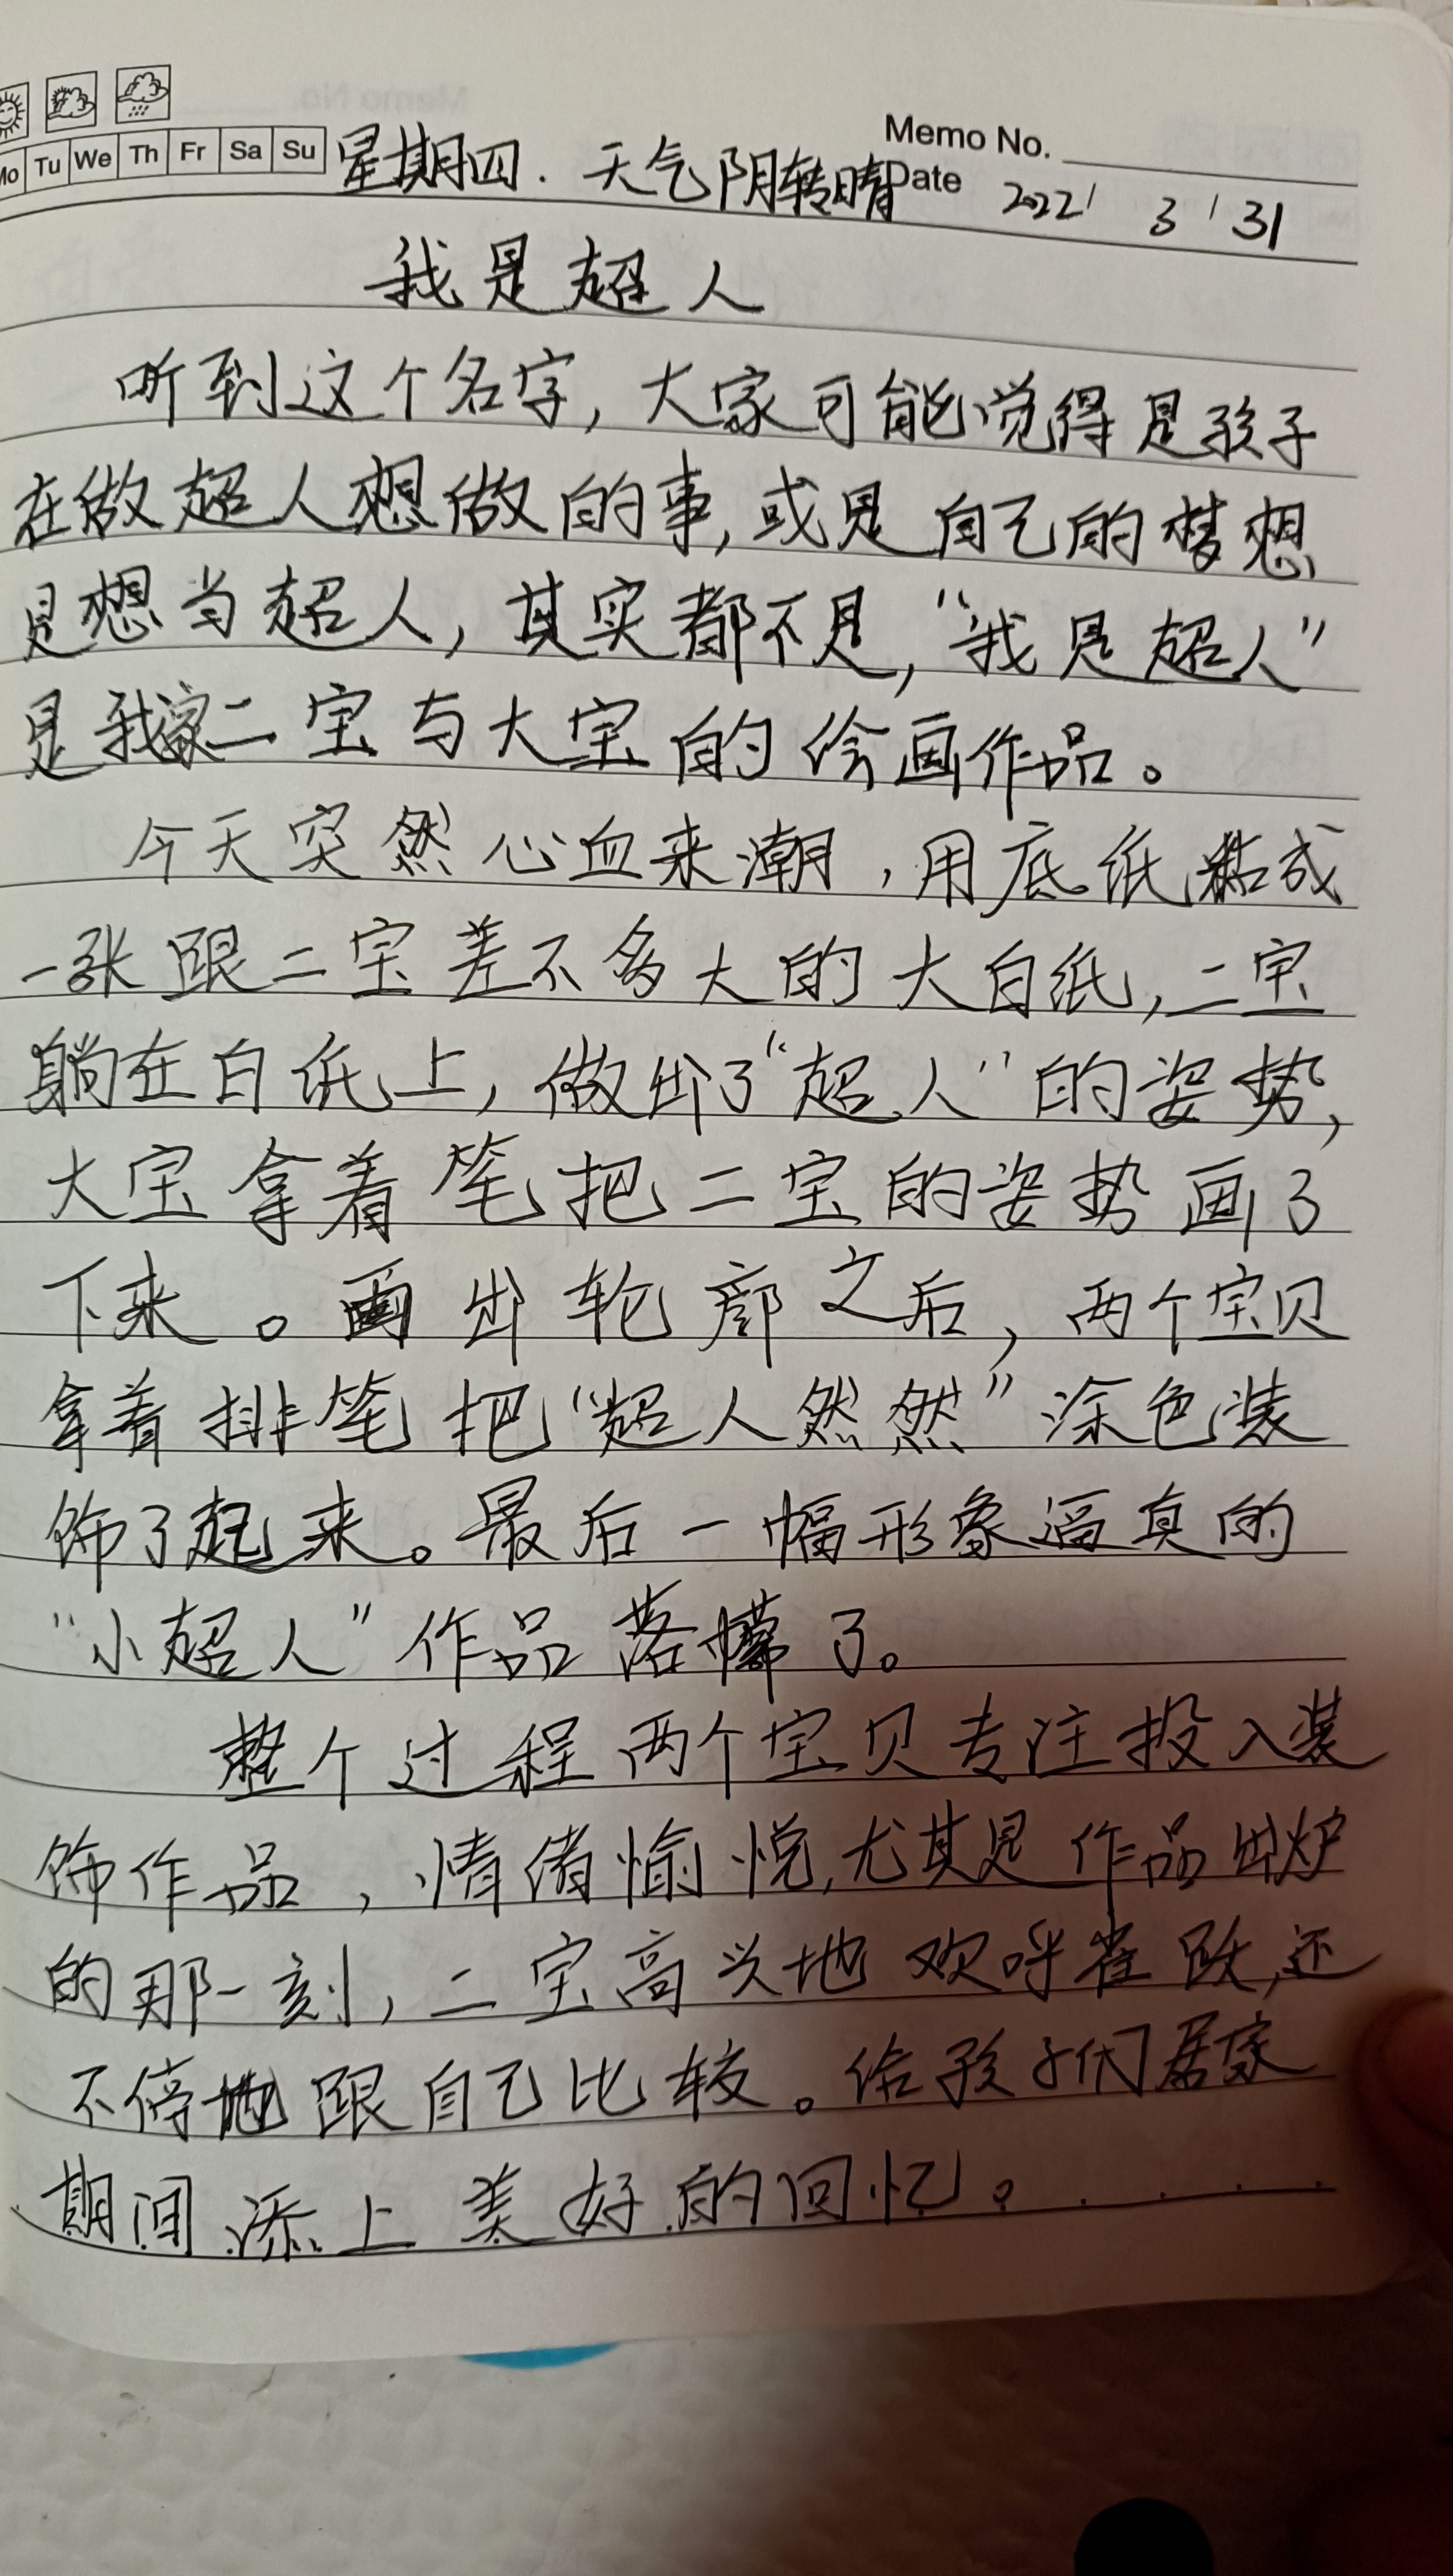 Memo No.
Mo Tu We Th Fr Sa Su 星期四. 天气阴转晴 Date 2022/ 3 / 31
我是超人
听到这个名字, 大家可能觉得是孩子
在做超人想做的事, 或是自己的梦想
是想当超人, 其实都不是, “我是超人”
是我家二宝与大宝的绘画作品。
今天突然心血来潮, 用底纸粘成
一张跟二宝差不多大的大白纸, 二宝
躺在白纸上, 做出了“超人”的姿势,
大宝拿着笔把二宝的姿势画了
下来。画出轮廓之后, 两个宝贝
拿着排笔把“超人然然”涂色装
饰了起来。最后一幅形象逼真的
“小超人”作品落幕了。
整个过程两个宝贝专注投入装
饰作品, 情绪愉悦, 尤其是作品出炉
的那一刻, 二宝高兴地欢呼雀跃, 还
不停地跟自己比较。给孩子们居家
期间添上美好的回忆。. . . .